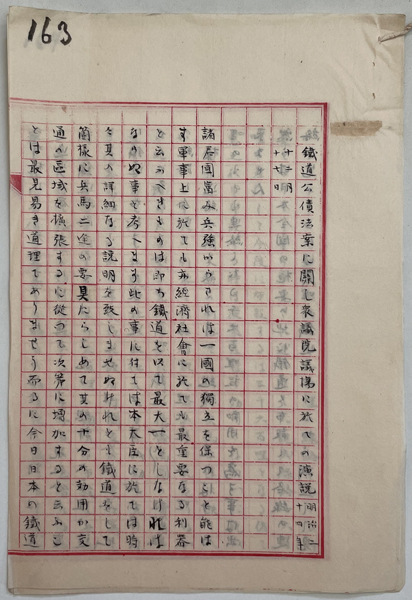 163
鐵道公債法案に關し衆議院議場に於ての演説 明治二十四年
十二月
十七日
諸君國富み兵強からされは一國の獨立を保つこと能は
す軍事上に於ても亦經濟社會に於ても最重要なる利器
と云ふへきものは即ち鐵道を以て最大一としなけれは
ならぬ事と考へます此の事に付ては本大臣に於ては時
を其の詳細なる説明を致しませぬけれとも鐵道をして
箇樣に兵馬二途の要具たらしめて其の十分の効用か交
通の區域を擴張するに從つて次第に増加すると云ふこ
とは最見易き道理てありませう而るに今日日本の鐵道